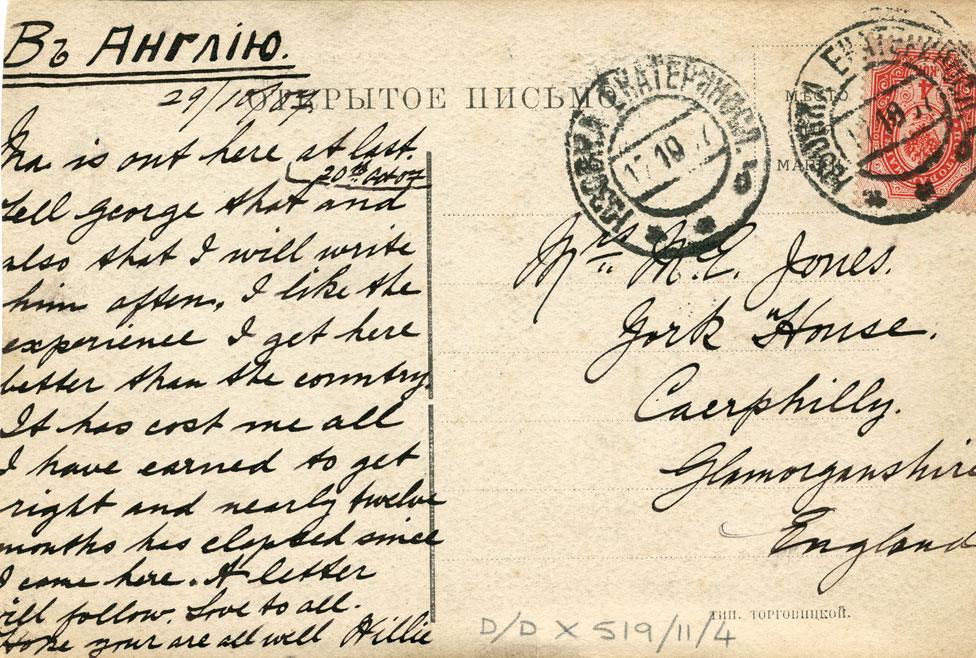 Въ Англію.
29/10/07.
ОТКРЫТОЕ ПИСЬМО
Ma is out here at last.
20th Oct 07
Tell George that and
also that I will write
him often. I like the
experience I get here
better than the country.
It has cost me all
I have earned to get
right and nearly twelve
months has elapsed since
I came here. A letter
will follow. Love to all.
Hope your are all well Willie
ЮЗОВКА ЕКАТЕРИНОСЛ.
17 10 07
МЕСТО
МАРКИ
ЮЗОВКА ЕКАТЕРИНОСЛ.
Mrs M. E. Jones.
York House.
Caerphilly.
Glamorganshire
England
ТИП. ТОРГОВИЦКОЙ.
D/D X 519/11/4